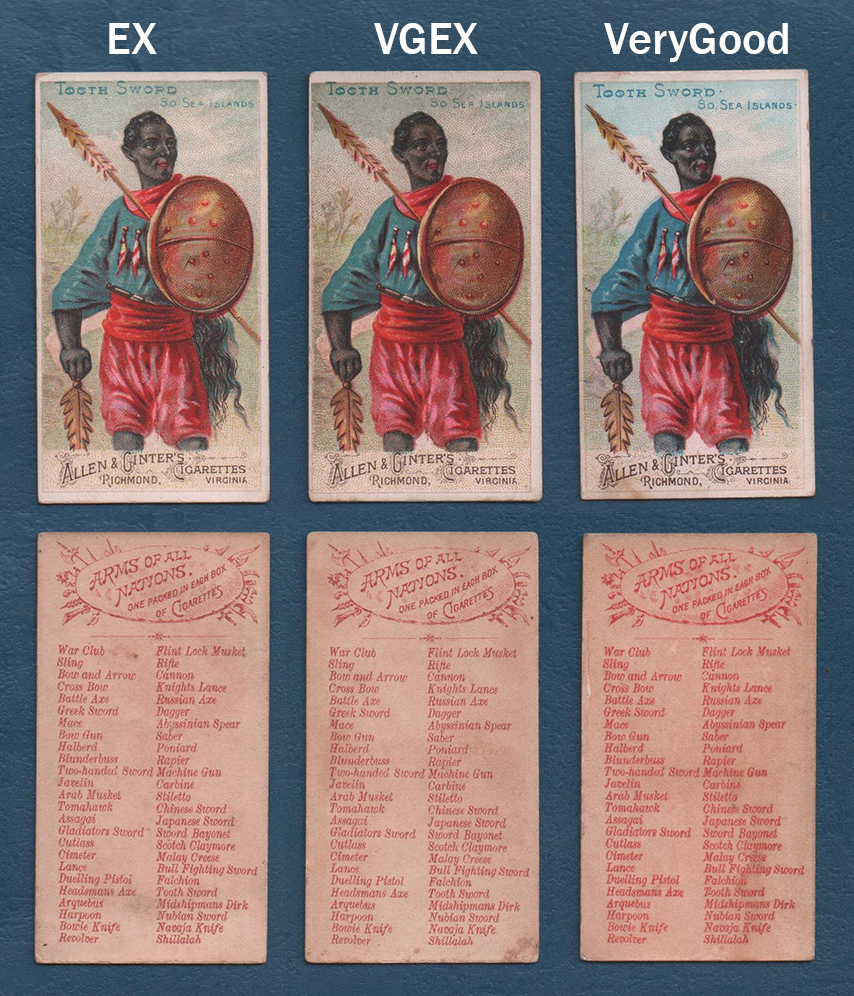 EX
VGEX
VeryGood
Tooth Sword
So. Sea Islands
Tooth Sword
So. Sea Islands
Tooth Sword.
So. Sea Islands.
Allen & Ginter's
Cigarettes
Richmond, Virginia
Allen & Ginter's
Cigarettes
Richmond, Virginia
Allen & Ginter's
Cigarettes
Richmond, Virginia
ARMS OF ALL
NATIONS.
ONE PACKED IN EACH BOX
OF CIGARETTES
War Club Flint Lock Musket
Sling Rifle
Bow and Arrow Cannon
Cross Bow Knights Lance
Battle Axe Russian Axe
Greek Sword Dagger
Mace Abyssinian Spear
Bow Gun Saber
Halberd Poniard
Blunderbuss Rapier
Two-handed Sword Machine Gun
Javelin Carbine
Arab Musket Stiletto
Tomahawk Chinese Sword
Assagai Japanese Sword
Gladiators Sword Sword Bayonet
Cutlass Scotch Claymore
Cimeter Malay Creese
Lance Bull Fighting Sword
Duelling Pistol Falchion
Headsmans Axe Tooth Sword
Arquebus Midshipmans Dirk
Harpoon Nubian Sword
Bowie Knife Navaja Knife
Revolver Shillalah
ARMS OF ALL
NATIONS.
ONE PACKED IN EACH BOX
OF CIGARETTES
War Club Flint Lock Musket
Sling Rifle
Bow and Arrow Cannon
Cross Bow Knights Lance
Battle Axe Russian Axe
Greek Sword Dagger
Mace Abyssinian Spear
Bow Gun Saber
Halberd Poniard
Blunderbuss Rapier
Two-handed Sword Machine Gun
Javelin Carbine
Arab Musket Stiletto
Tomahawk Chinese Sword
Assagai Japanese Sword
Gladiators Sword Sword Bayonet
Cutlass Scotch Claymore
Cimeter Malay Creese
Lance Bull Fighting Sword
Duelling Pistol Falchion
Headsmans Axe Tooth Sword
Arquebus Midshipmans Dirk
Harpoon Nubian Sword
Bowie Knife Navaja Knife
Revolver Shillalah
ARMS OF ALL
NATIONS.
ONE PACKED IN EACH BOX
OF CIGARETTES
War Club Flint Lock Musket
Sling Rifle
Bow and Arrow Cannon
Cross Bow Knights Lance
Battle Axe Russian Axe
Greek Sword Dagger
Mace Abyssinian Spear
Bow Gun Saber
Halberd Poniard
Blunderbuss Rapier
Two-handed Sword Machine Gun
Javelin Carbine
Arab Musket Stiletto
Tomahawk Chinese Sword
Assagai Japanese Sword
Gladiators Sword Sword Bayonet
Cutlass Scotch Claymore
Cimeter Malay Creese
Lance Bull Fighting Sword
Duelling Pistol Falchion
Headsmans Axe Tooth Sword
Arquebus Midshipmans Dirk
Harpoon Nubian Sword
Bowie Knife Navaja Knife
Revolver Shillalah